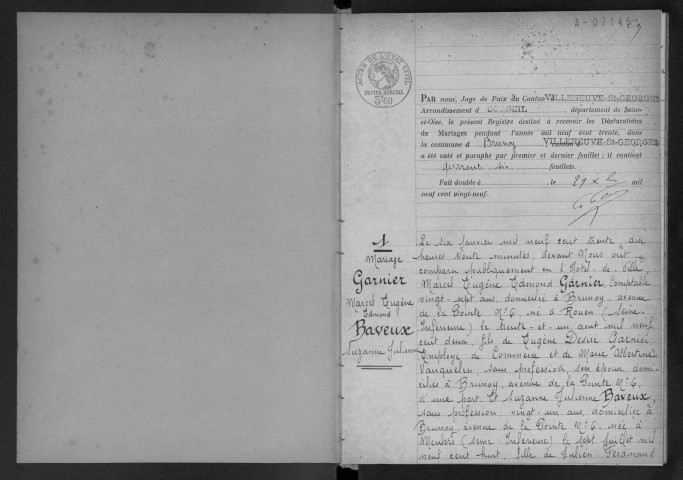 A-07145
ACTES DE L'ÉTAT CIVIL
PAPIER SPÉCIAL
3f60
PAR nous, Juge de Paix du Canton VILLENEUVE-ST-GEORGES
Arrondissement d CORBEIL, département de Seine-
et-Oise, le présent Registre destiné à recevoir les Déclarations
de Mariages pendant l'année mil neuf cent trente, dans
la commune d Brunoy, canton d VILLENEUVE-ST-GEORGES
a été coté et paraphé par premier et dernier feuillet; il contient
quarante six feuillets.
Fait double à , le 29 Xbre mil
neuf cent vingt-neuf.
1
Mariage
Garnier
Marcel Eugène
Edmond
Baveux
Suzanne Julienne
Le six Janvier mil neuf cent trente dix
heures trente minutes, devant Nous ont
comparu publiquement en l'Hôtel de Ville,
Marcel Eugène Edmond Garnier, Comptable
vingt-sept ans, domicilié à Brunoy, avenue
de la Pointe N°6, né à Rouen (Seine-
Inférieure) le trente-et-un août mil neuf
cent deux, fils de Eugène Désiré Garnier
Employé de Commerce et de Marie Albertine
Vauquelin, sans profession, son épouse domi-
ciliés à Brunoy, avenue de la Pointe N°6,
d'une part. Et Suzanne Julienne Baveux,
sans profession, vingt-un ans, domiciliée à
Brunoy avenue de la Pointe N°6, née à
(Seine-Inférieure) le sept Juillet mil
neuf cent huit, fille de Julien Ferdinand